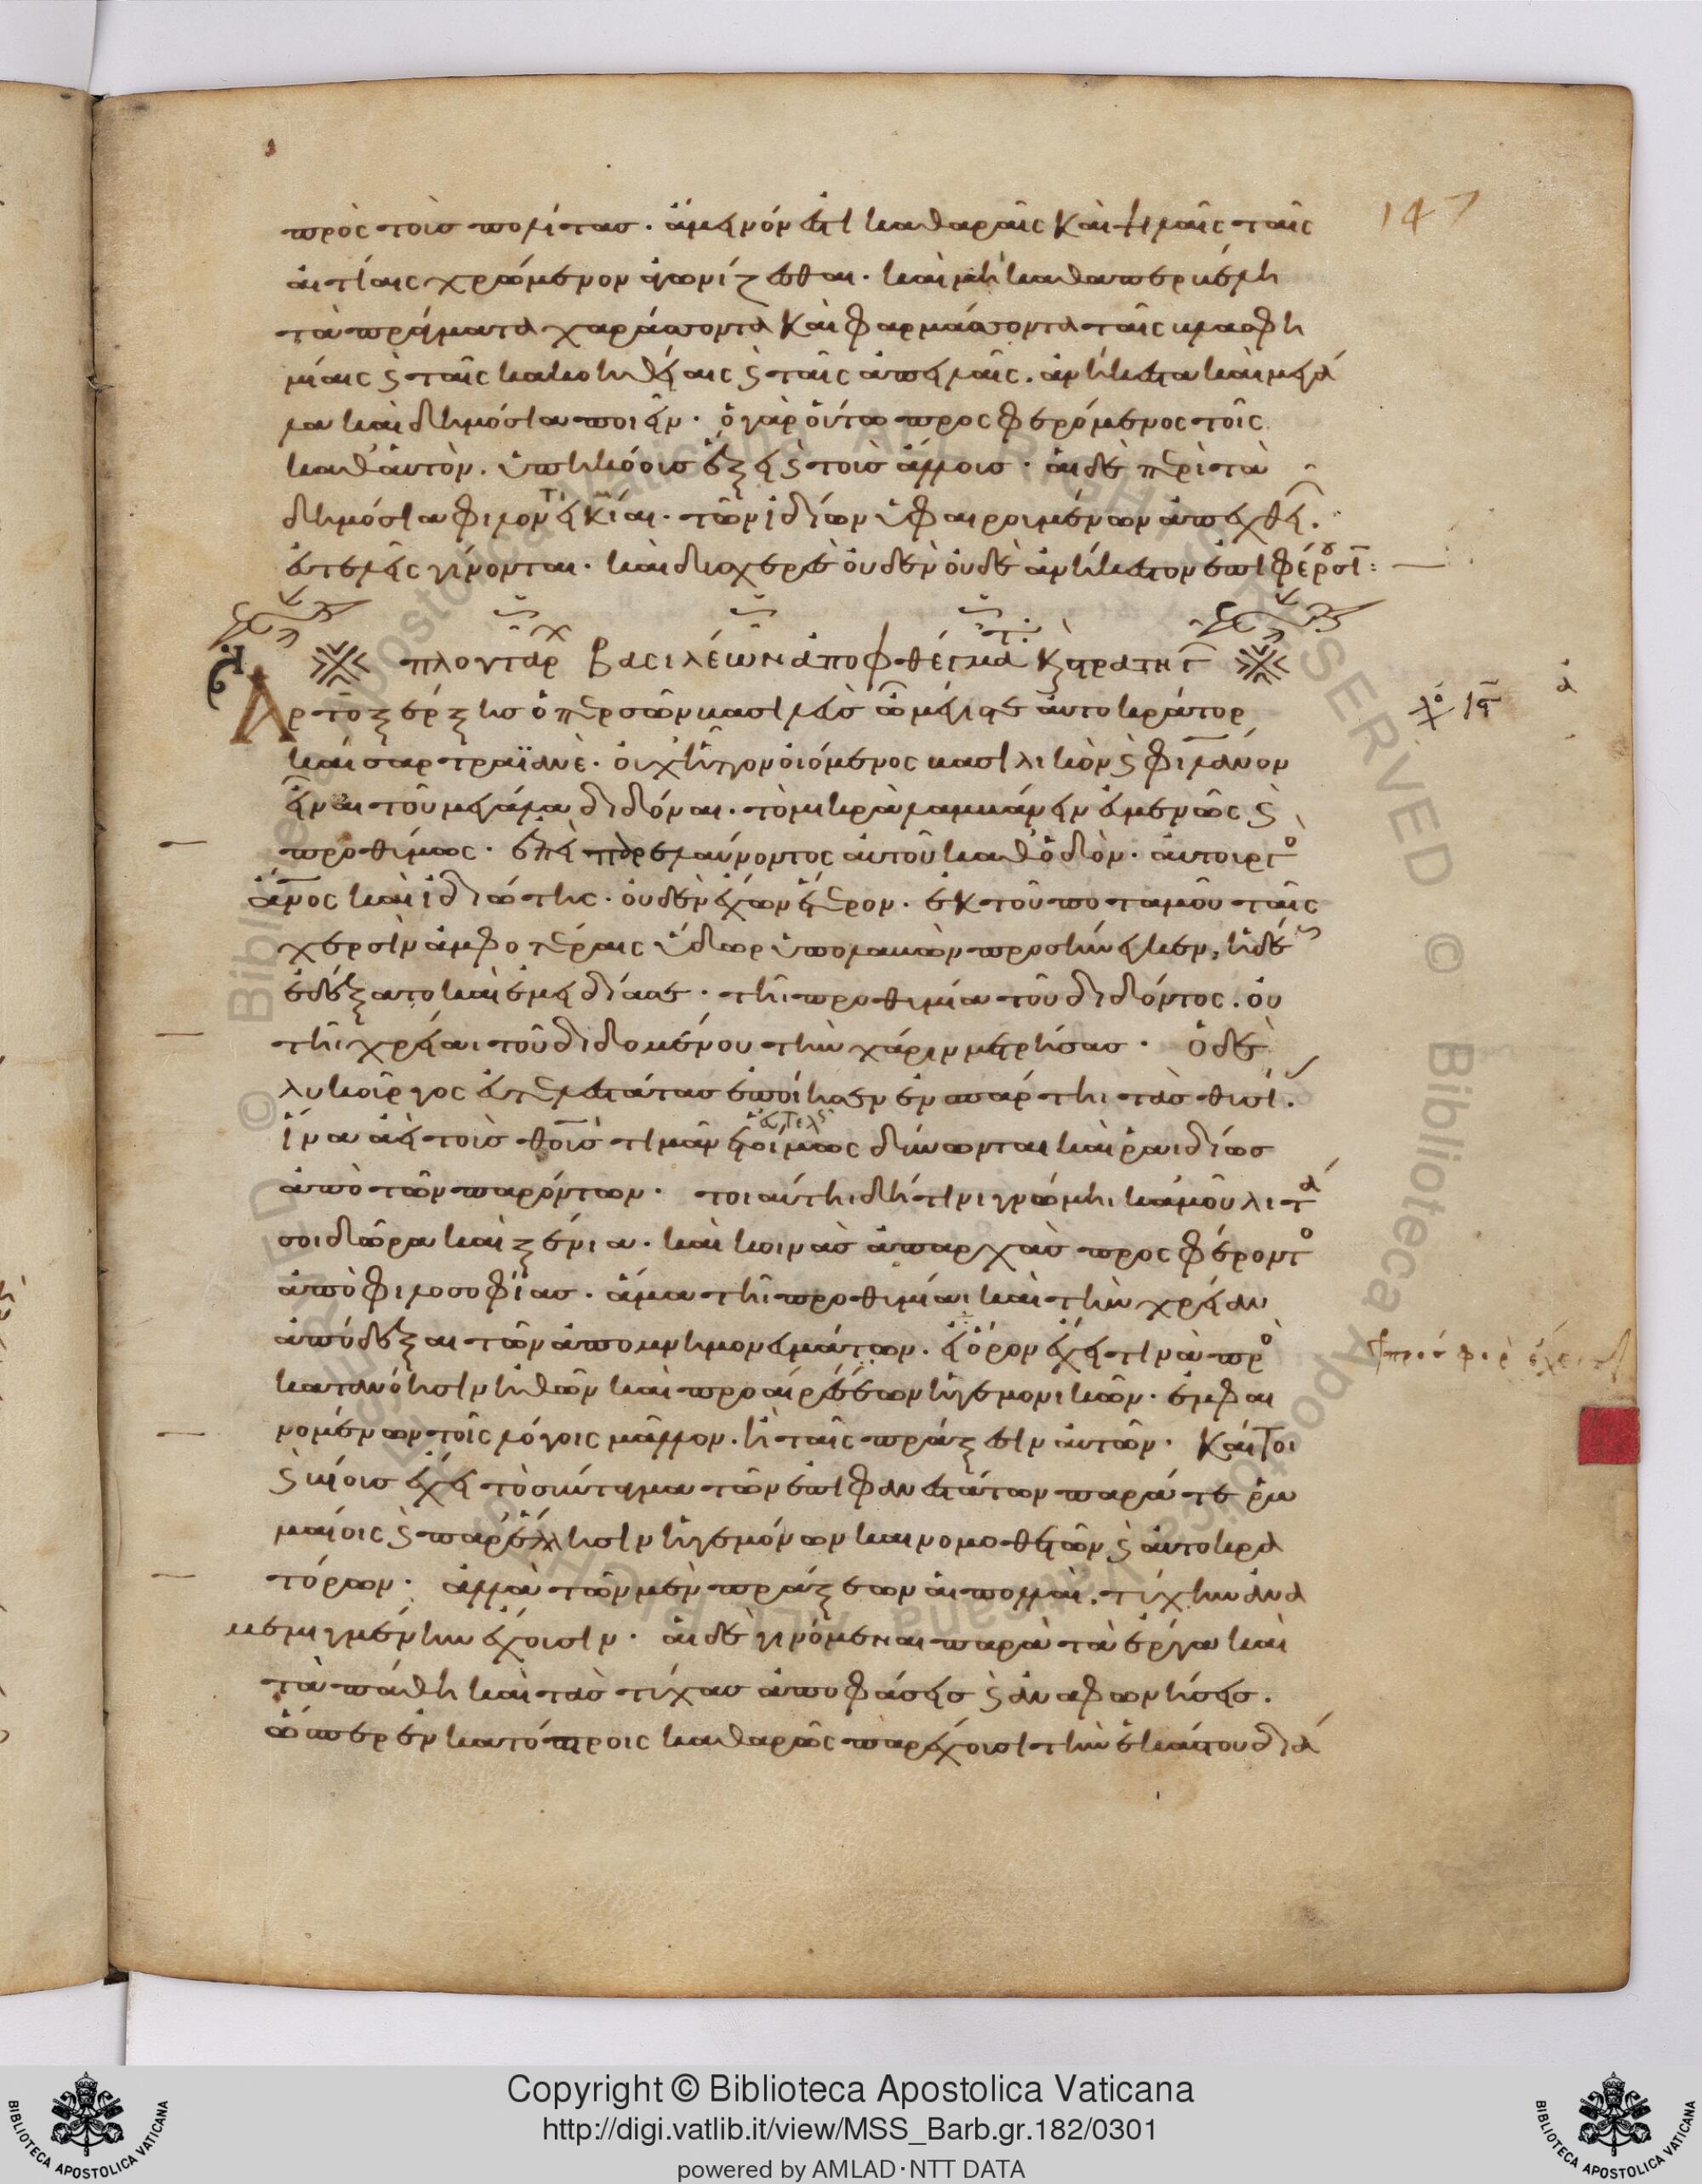 147
πρὸς τοὺς πολίτας. ἄμεινόν ἐστι καθαραῖς καὶ ψιλαῖς ταῖς
αἰτίαις χρώμενον ἀγωνίζεσθαι. καὶ μὴ καθάπερ βέλη
τὰ πράγματα χαράσσοντα καὶ φαρμάσσοντα ταῖς βλασφη
μίαις ϗ ταῖς κακοηθείαις ϗ ταῖς ἀπειλαῖς. ἀνήκεστα καὶ μεγά
λα καὶ δημόσια ποιεῖν. ὁ γὰρ οὕτω προσφερόμενος τοῖς
καθ' αὑτὸν. ὑπηκόοις ἕξει ϗ τοὺς ἄλλους. αἱ δὲ περὶ τὰ
δημόσια φιλονεικίαι. τῶν ἰδίων ὑφαιρουμένων ἀπεχθει.
εὐτελεῖς γίνονται. καὶ δυσχερὲς οὐδὲν οὐδὲ ἀνήκεστον ἐπιφέρουσι:
πλουτάρχ βασιλέων ἀποφθέγματ ϗ στρατηγ
λό ις
Ἀρτοξέρξης ὁ περσῶν βασιλεὺς ὦ μέγιστε αὐτοκράτορ
καῖσαρ τραϊανὲ. οὐχ ἧττον οἰόμενος βασιλικὸν ϗ φιλάνον
εἶναι τοῦ μεγάλα διδόναι. τὸ μικρὰ λαμβάνειν εὐμενῶς ϗ
προθύμως. ἐπεὶ παρελαύνοντος αὐτοῦ καθ' ὁδὸν. αὐτουργο
ἄνος καὶ ἰδιώτης. οὐδὲν ἔχων ἕτερον. ἐκ τοῦ ποταμοῦ ταῖς
χερσὶν ἀμφοτέραις ὕδωρ ὑπολαβὼν προσήνεγκεν, ἡδέ
ἐδέξατο καὶ ἐμειδίασε. τῆι προθυμία τοῦ διδόντος. οὐ
τῆι χρείαι τοῦ διδομένου τὴν χάριν μετρήσας. ὁ δὲ
λυκοῦργος εὐτελεστάτας ἐποίησεν ἐν σπάρτηι τὰς θυσί.
ἵνα ἀεὶ τοὺς θοὺς τιμᾶν ἑτοίμως δύνωνται καὶ ῥαιδίως
ἀπὸ τῶν παρόντων. τοιαύτηι δή τινι γνώμηι κἀμοῦ λιτά
σοι δῶρα καὶ ξένια. καὶ κοινὰς ἀπαρχὰς προσφέροντο
ἀπὸ φιλοσοφίας. ἅμα τῆι προθυμίαι καὶ τὴν χρείαν
ἀπόδεξαι τῶν ἀπομνημονευμάτων. εἰ ὅρον ἔχει τινὰ προ
κατανόησιν ἠθῶν καὶ προαιρέσεων ἡγεμονικῶν. ἐμφαι
νομένων τοῖς λόγοις μᾶλλον. ἢ ταῖς πράξεσιν αὐτῶν. καίτοι
ϗ βίους ἔχει τὸ σύνταγμα τῶν ἐπιφανεστάτων παρά τε ῥω
μαίοις ϗ παρ' ἕλλησιν ἡγεμόνων καὶ νομοθετῶν ϗ αὐτοκρα
τόρων. ἀλλὰ τῶν μὲν πράξεων αἱ πολλαὶ. τύχην ἀνα
μεμιγμένην ἔχουσιν. αἱ δὲ γινόμεναι παρὰ τὰ ἔργα καὶ
τὰ πάθη καὶ τὰς τύχας ἀποφάσεις ϗ ἀναφωνήσεις.
ὥσπερ ἐν κατόπτροις καθαρῶς παρέχουσι τὴν ἑκάστου διά
Copyright © Biblioteca Apostolica Vaticana
http://digi.vatlib.it/view/MSS_Barb.gr.182/0301
powered by AMLAD·NTT DATA
BIBLIOTECA APOSTOLICA VATICANA
BIBLIOTECA APOSTOLICA VATICANA